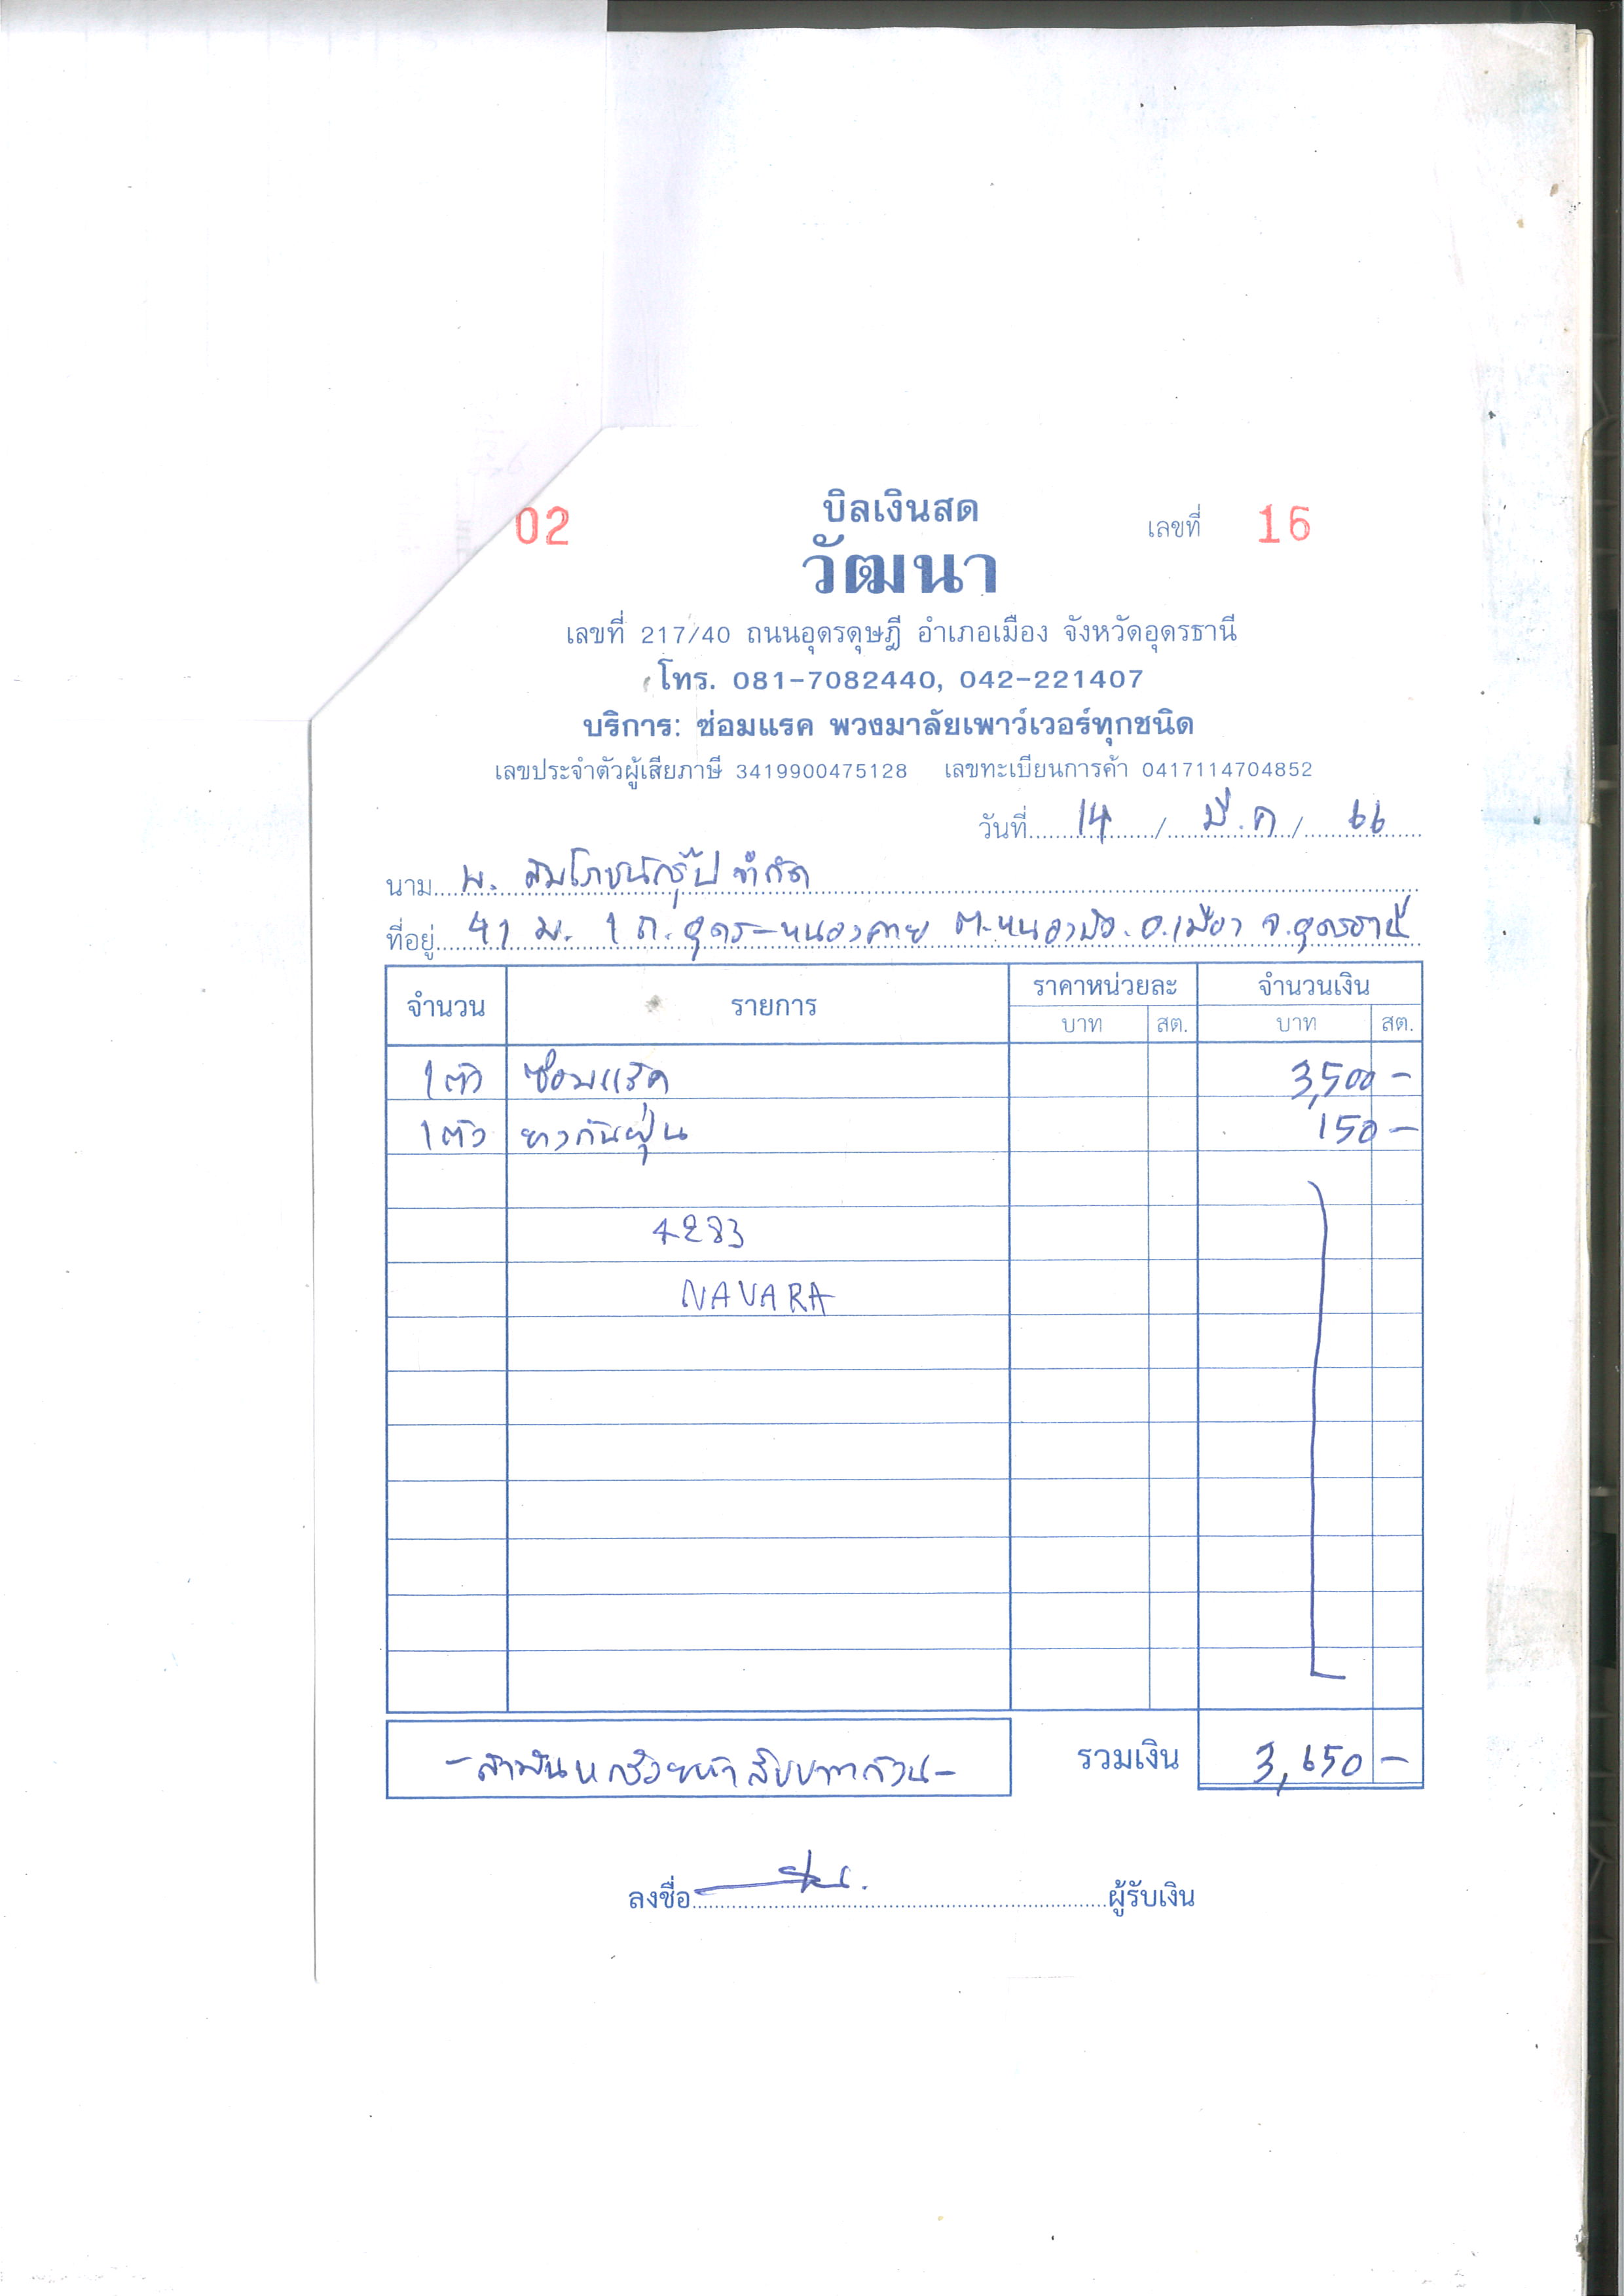 02 บิลเงินสด เลขที่ 16
วัฒนา
เลขที่ 217/40 ถนนอุดรดุษฎี อำเภอเมือง จังหวัดอุดรธานี
โทร. 081-7082440, 042-221407
บริการ: ซ่อมแรค พวงมาลัยเพาว์เวอร์ทุกชนิด
เลขประจำตัวผู้เสียภาษี 3419900475128 เลขทะเบียนการค้า 0417114704852
วันที่ 14 / มี.ค / 66
นาม บ. สัมโภชน์กรุ๊ป จำกัด
ที่อยู่ 41 ม. 1 ถ. อุดร-หนองคาย ต.หนองบัว. อ.เมือง จ.อุดรธานี
จำนวน รายการ ราคาหน่วยละ จำนวนเงิน
บาท สต. บาท สต.
1 ตัว ซ่อมแร็ค 3,500 -
1 ตัว ยางกันฝุ่น 150 -
4283
NAVARA
-สามพันหกร้อยห้าสิบบาทถ้วน- รวมเงิน 3,650 -
ลงชื่อ ผู้รับเงิน